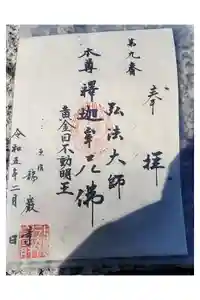 奉拝
第九番
弘法大師
本尊釋迦牟尼佛
黄金目不動明王
令和五年二月　日